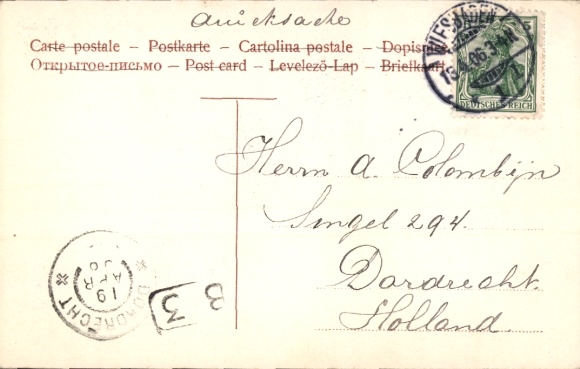 Drucksache
Carte postale – Postkarte – Cartolina postale – Dopisnice
Открытое-письмо – Post card – Levelező-Lap – Briefkaart
WIESBADEN
1
5
DEUTSCHES REICH
Herrn A. Colombijn
Singel 294.
Dordrecht.
Holland.
DORDRECHT
19
APR
06
B
3